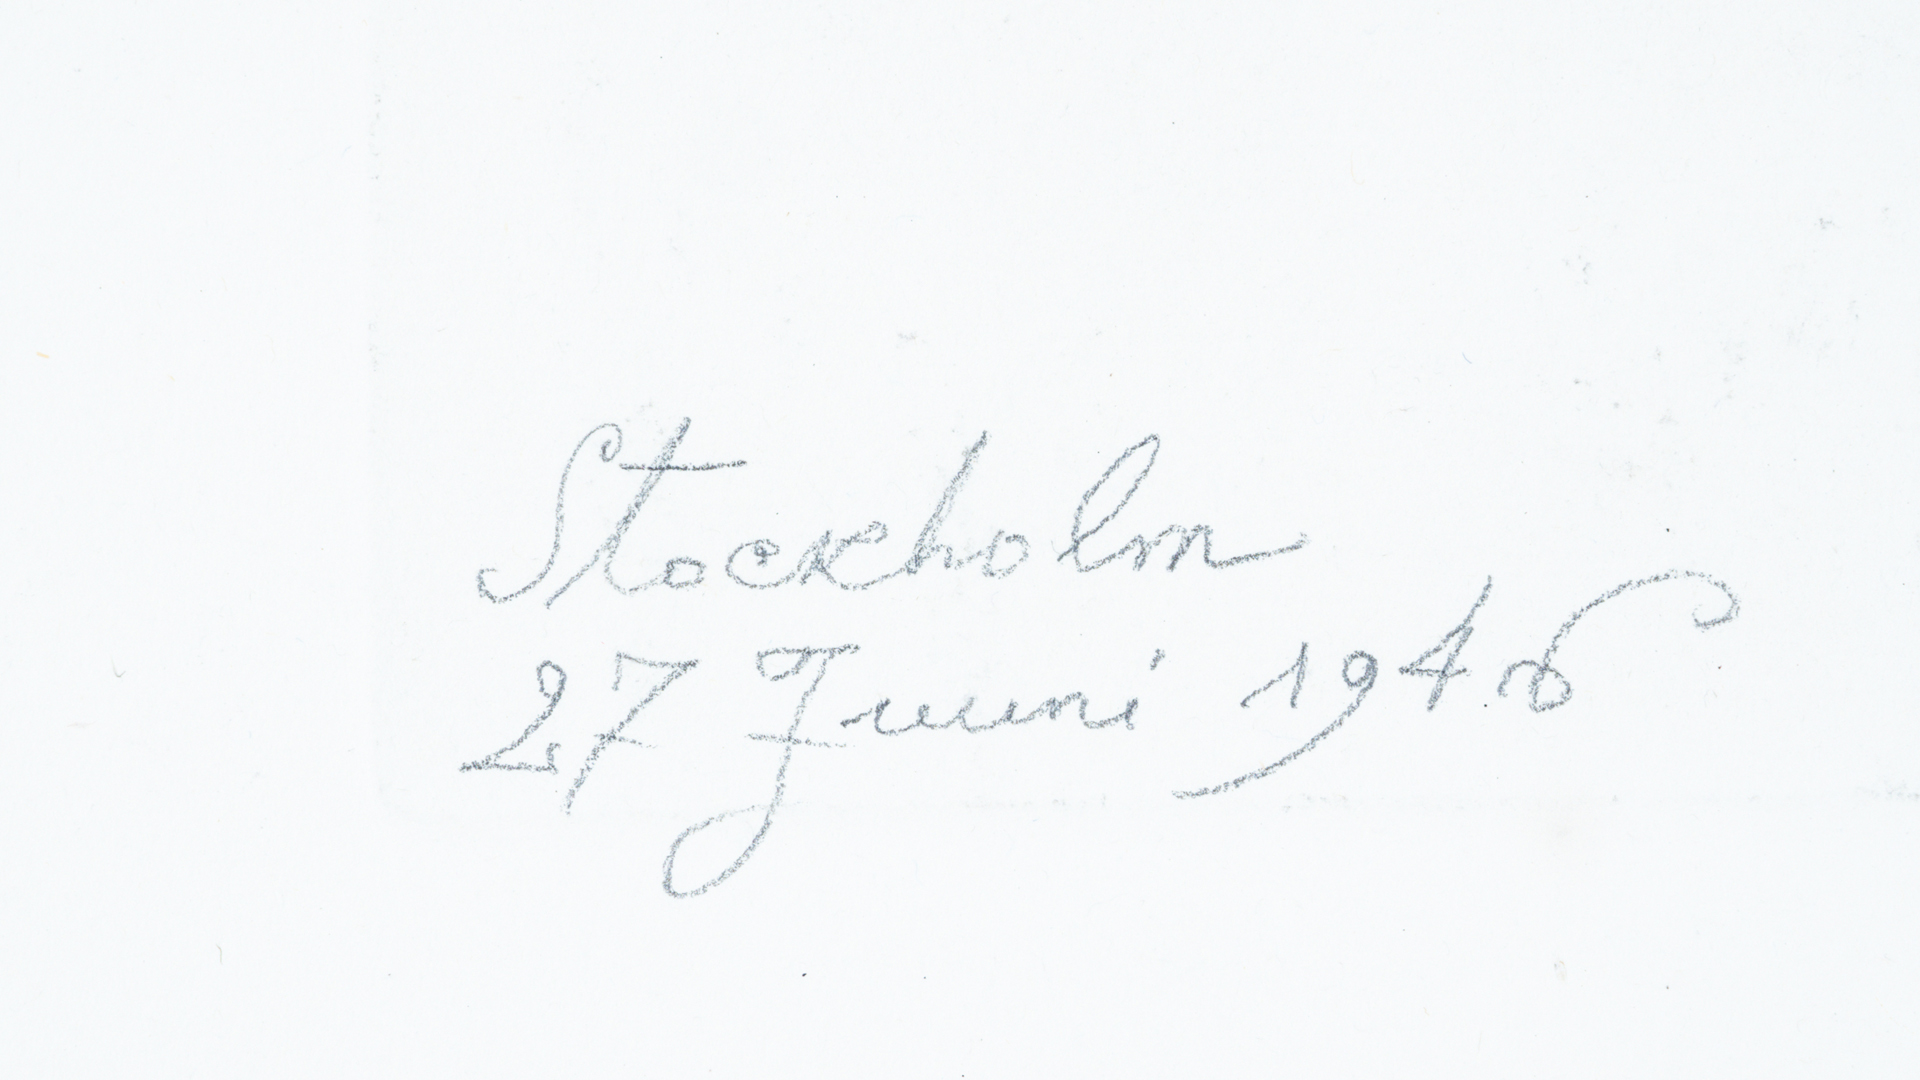 Stockholm
27 Juuni 1946